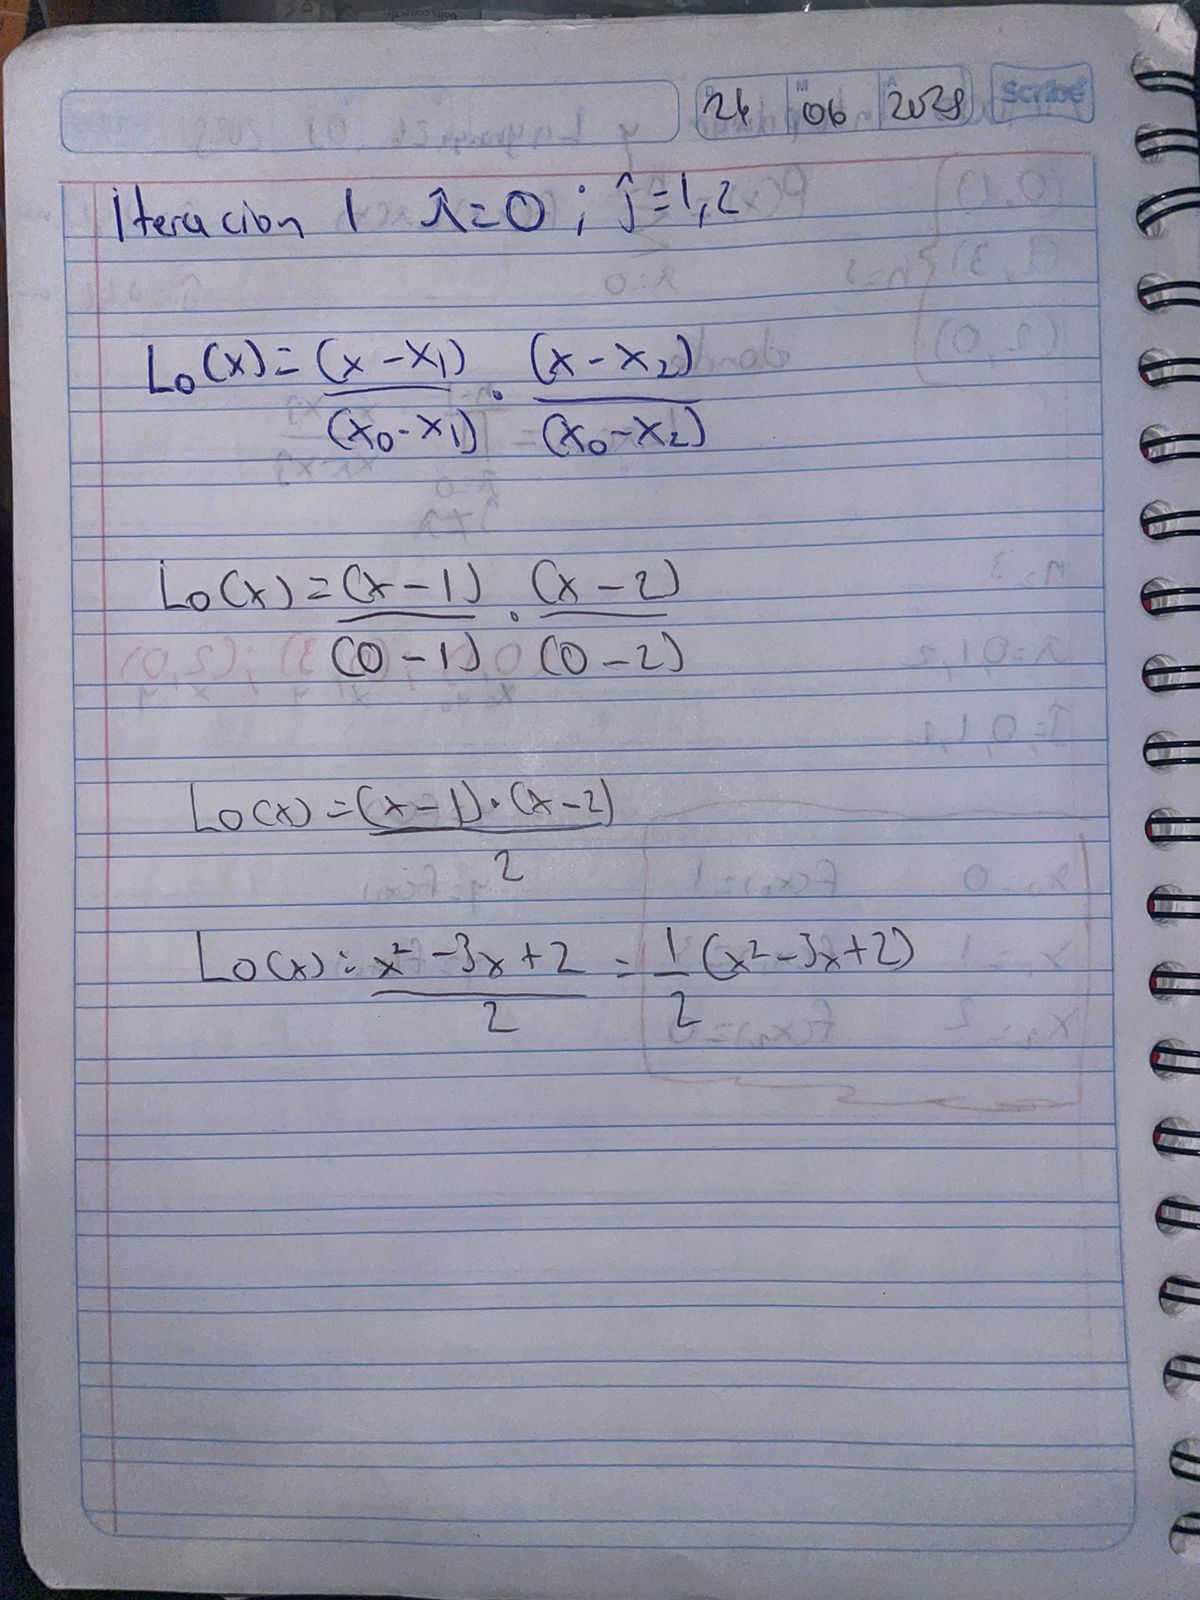 24 06 2028 Scribe
Iteracion 1 i=0 ; j=1,2
L0(x)=(x-x1)/(x0-x1) · (x-x2)/(x0-x2)
L0(x)=(x-1)/(0-1) · (x-2)/(0-2)
L0(x)=(x-1)·(x-2)/2
L0(x)=x²-3x+2/2 = 1/2 (x²-3x+2)